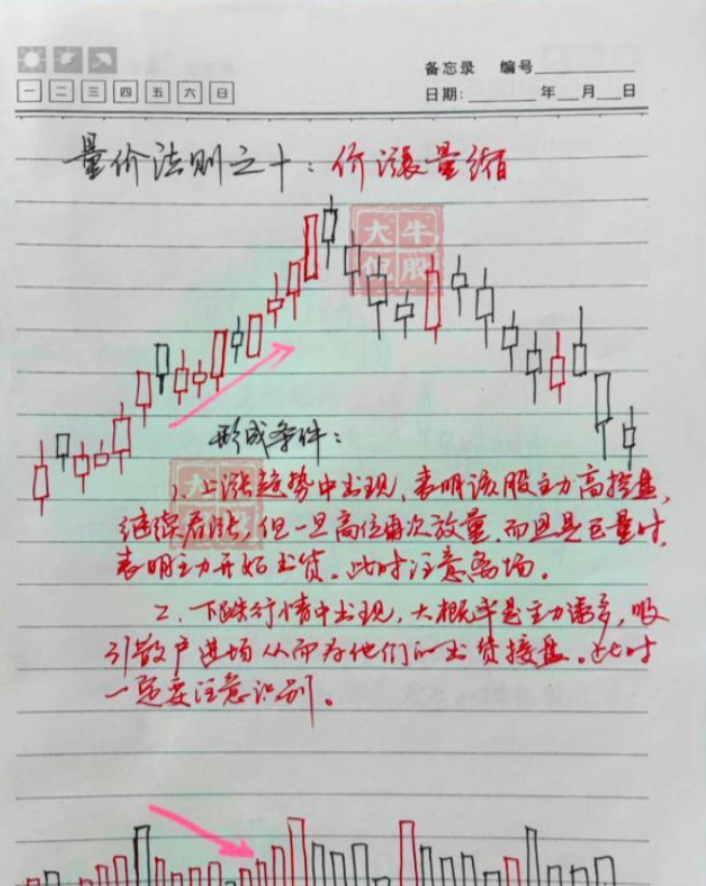 备忘录 编号
一 二 三 四 五 六 日
日期: 年 月 日
量价法则之十：价涨量缩
大牛
股
形成条件：
1. 上涨趋势中出现，表明该股主力高控盘，
继续看涨，但一旦高位再次放量，而且是巨量时，
表明主力开始出货，此时注意离场。
2. 下跌行情中出现，大概率是主力诱多，吸
引散户进场从而为他们的出货接盘。此时
一定要注意识别。